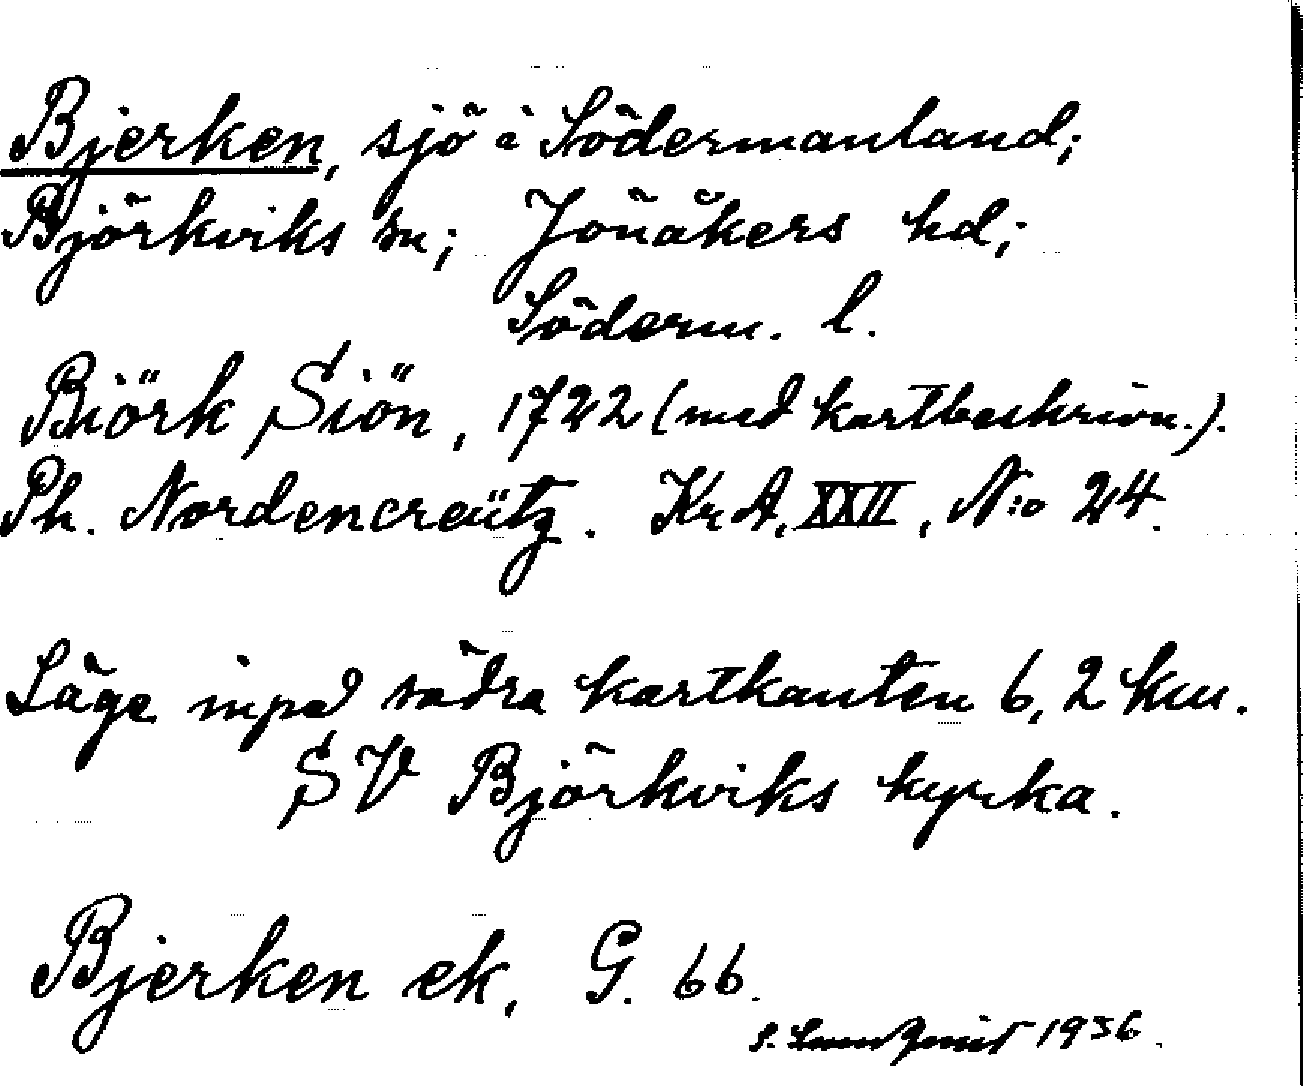 Bjerken, sjö i Södermanland;
Björkviks sn; Jönåkers hd;
Söderm. l.
Biörk Siön, 1722 (med kartbeskrivn.).
Ph. Nordencreütz. Kr A, XXII, N:o 24.
Läge inpå södra kartkanten 6,2 km.
SV Björkviks kyrka.
Bjerken ek, G. 66.
S. 1936.